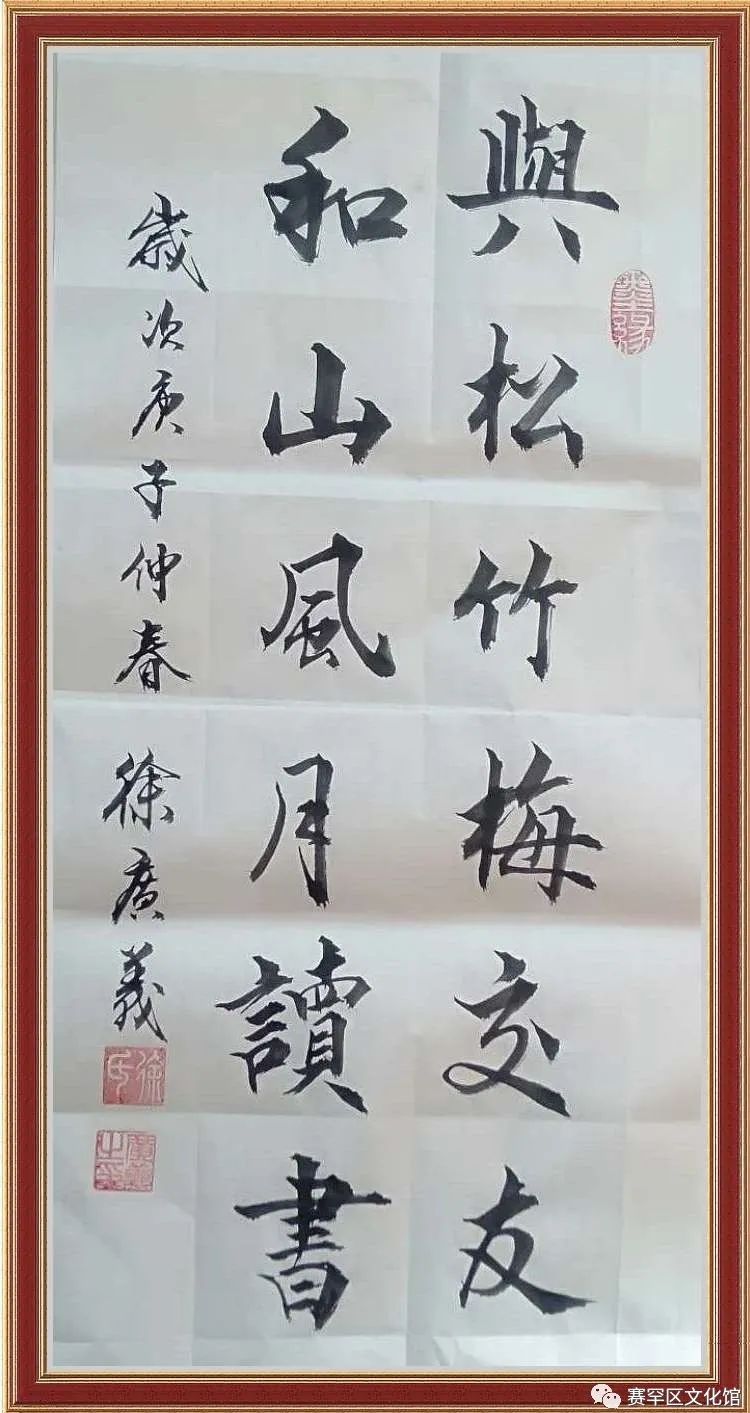 與松竹梅交友
和山風月讀書
歲次庚子仲春
徐廣義
徐氏
廣義之印
赛罕区文化馆